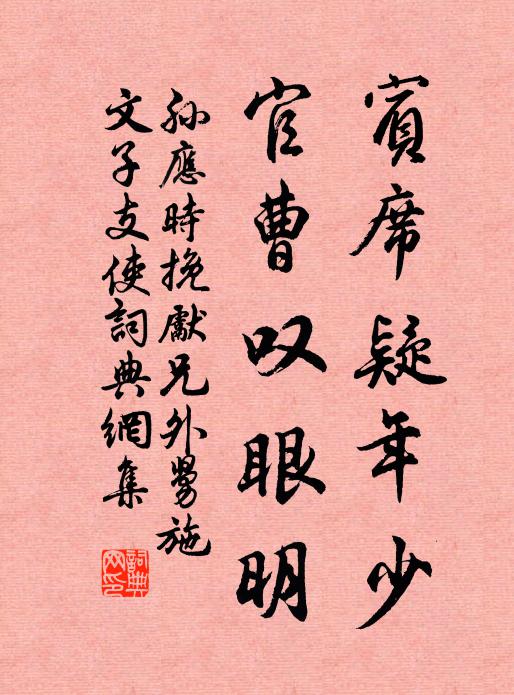 賓席疑年少
官曹叹眼明
孙應時挽獻兄外舅施
文子支使詞典網集
詞典網印